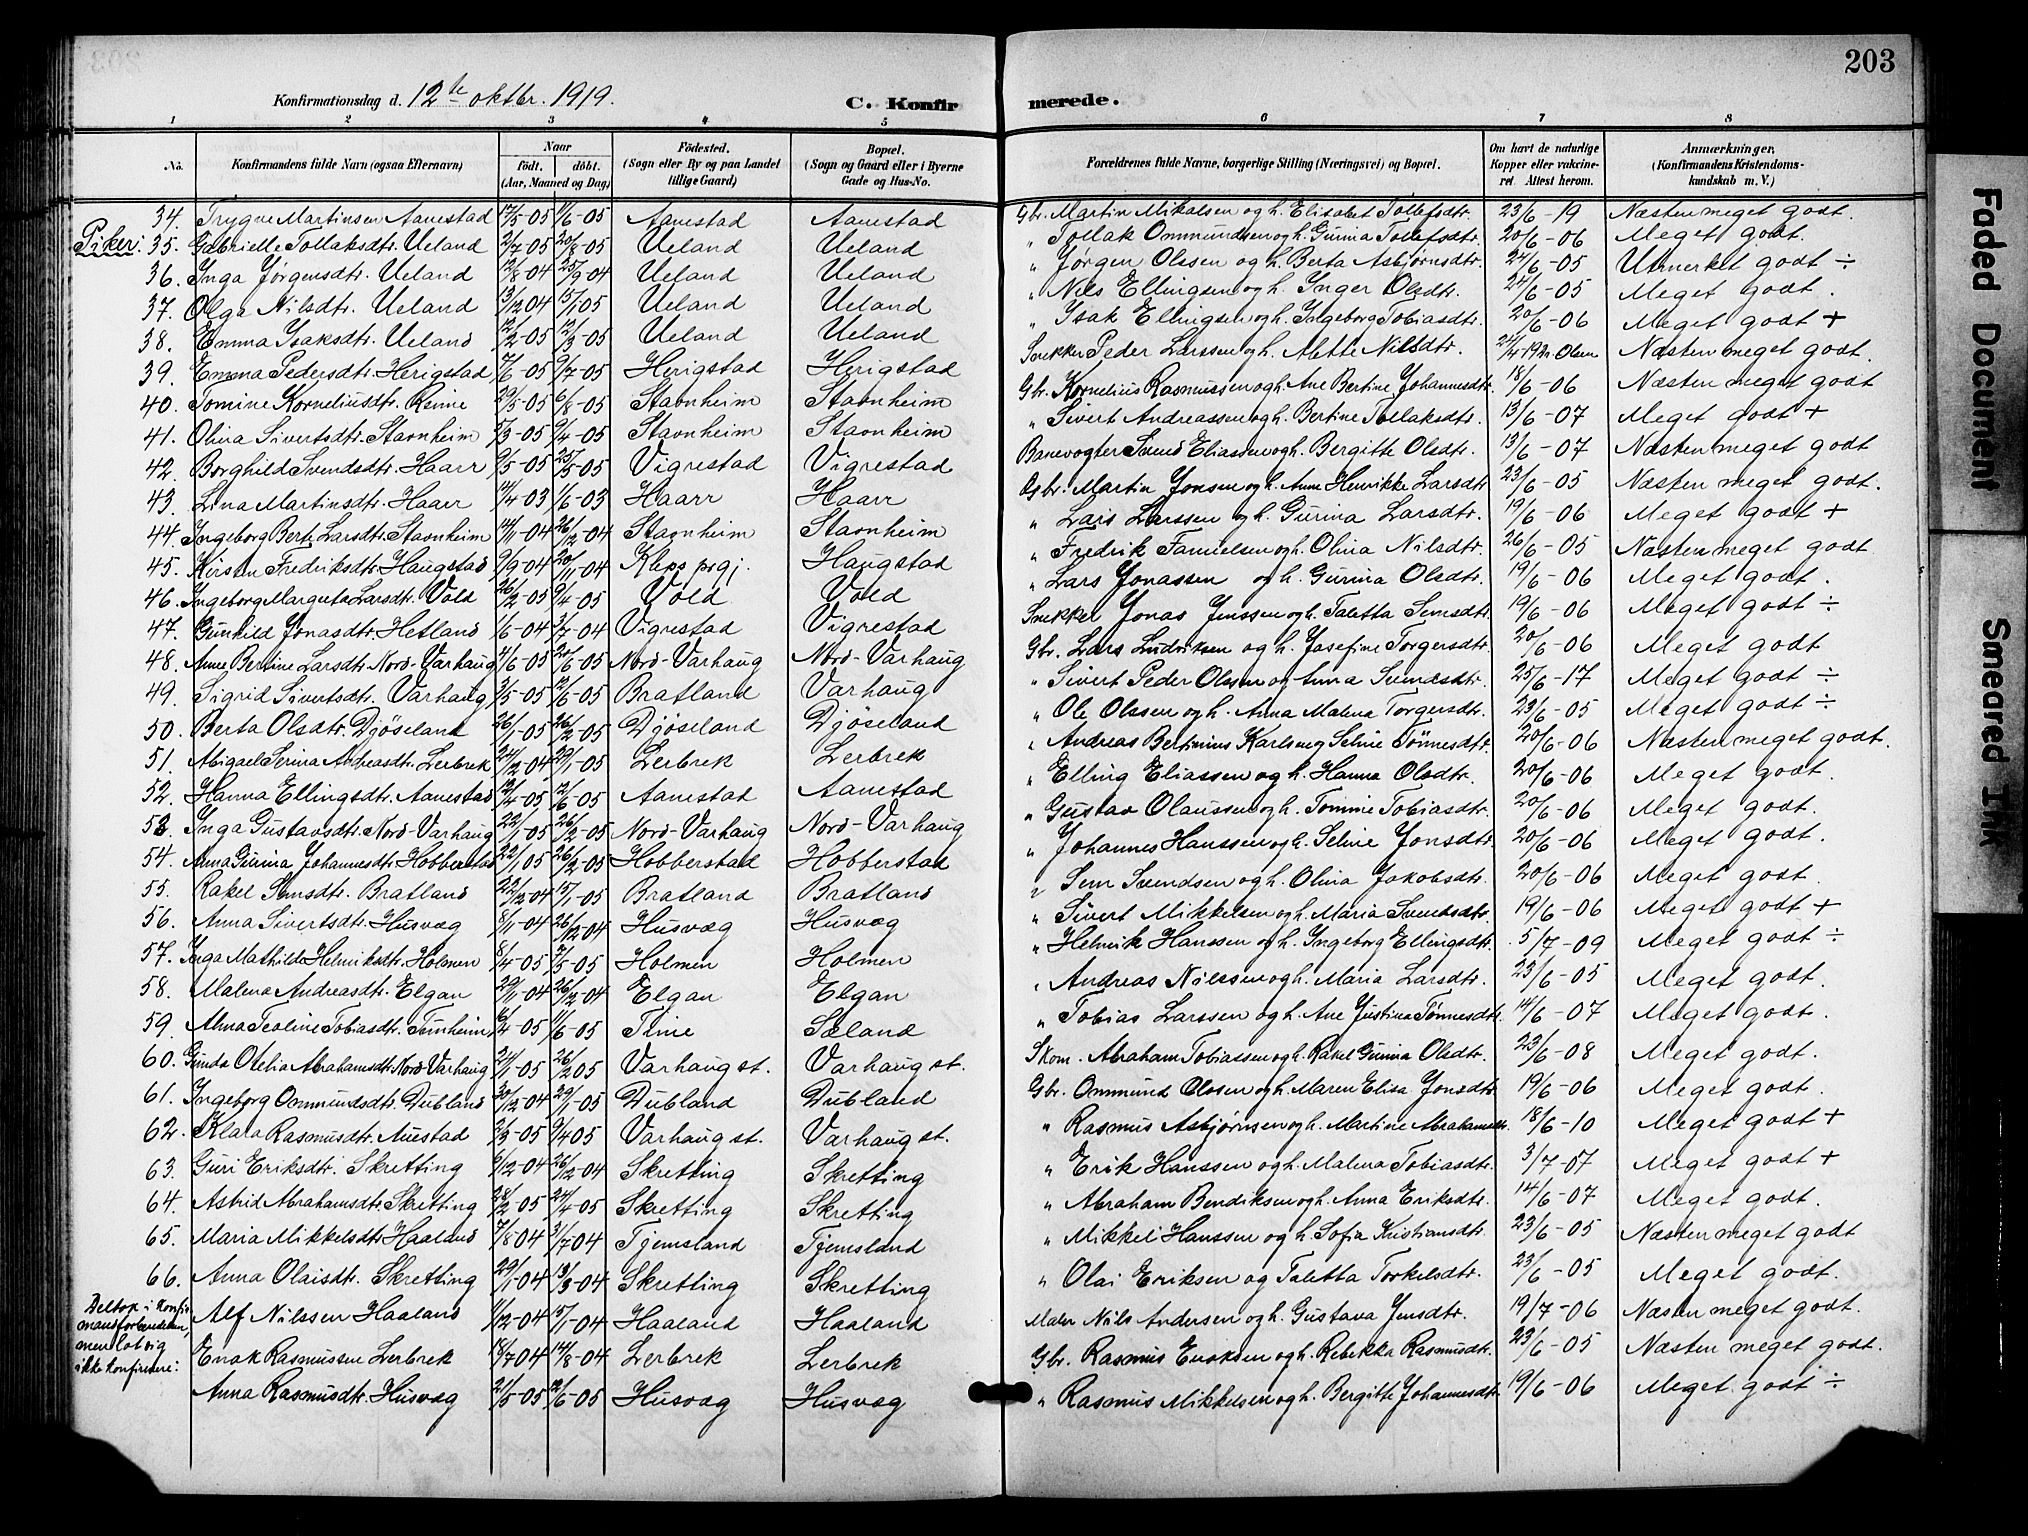 203
Konfirmationsdag d. 12te oktbr. 1919. C. Konfirmerede.
1 2 3 4 5 6 7 8
No. Konfirmandens fulde Navn (ogsaa Efternavn) Naar født. døbt. (Aar, Maaned og Dag) Fødested. (Sogn eller By og paa Landet tillige Gaard) Bopæl. (Sogn og Gaard eller i Byerne Gade og Hus-No. Forældrenes fulde Navne, borgerlige Stilling (Næringsvei) og Bopæl. Om havt de naturlige Kopper eller vakcineret. Attest herom. Anmærkninger, (Konfirmandens Kristendomskundskab m. V.)
34. Trygve Martinsen Aanestad 17/5-05 11/6-05 Aanestad Aanestad Gbr. Martin Mikalsen og h. Elisabet Tollefsdtr. 23/6-19 Næsten meget godt.
Piker: 35. Gabrielle Tollaksdtr. Ueland 2/7-05 20/8-05 Ueland Ueland " Tollak Ommundsen og h. Gurina Tollefsdtr. 20/6-06 Meget godt.
36. Inga Jørgensdtr. Ueland 12/8-04 25/9-04 Ueland Ueland " Jørgen Olssen og h. Berta Asbjørnsdtr. 24/6-05 Utmerket godt ÷
37. Olga Nilsdtr. Ueland 13/12 04 15/1 05 Ueland Ueland " Nils Ellingsen og h. Inger Olsdtr. 24/6-05 Meget godt.
38. Emma Isaksdtr. Ueland 12/2-05 12/3-05 Ueland Ueland " Isak Ellingsen og h. Ingeborg Tobiasdtr. 20/6-06 Meget godt +
39. Emma Pedersdtr. Herigstad 7/6-05 9/7-05 Herigstad Herigstad Snekker Peder Larssen og h. Alette Nilsdtr. Olsen Næsten meget godt.
40. Tomine Korneliusdtr. Reime 29/5-05 6/8-05 Stavnheim Stavnheim Gbr. Kornelius Rasmussen og h. Ane Bertine Johannesdtr. 18/6-06 Næsten meget godt
41. Olina Sivertsdtr. Stavnheim 5/3-05 9/4-05 Stavnheim Stavnheim " Sivert Andreassen og h. Bertine Tollaksdtr. 13/6-07 Meget godt +
42. Borghild Svendsdtr. Haarr 9/5-05 25/5-05 Vigrestad Vigrestad Banevogter Svend Eliassen og h. Bergitte Olsdtr. 13/6-07 Næsten meget godt
43. Lina Martinsdtr. Haarr 14/4 03 1/6-03 Haarr Haarr Gbr. Martin Jonsen og h. Anne Henrikke Larsdtr 23/6-05 Næsten meget godt.
44. Ingeborg Berte Larsdtr. Stavnheim 14/11-04 26/12-04 Stavnheim Stavnheim " Lars Larssen og h. Gurina Larsdtr. 19/6-06 Meget godt +
45. Kirsten Fredriksdtr. Haugstad 9/9-04 20/11-04 Klepp prgj. Haugstad " Fredrik og h. Olina Nilsdtr. 26/6-05 Næsten meget godt
46. Ingeborg Margreta Larsdtr. Vold 26/2-05 9/4-05 Vold Vold " Lars Jonassen og h. Gurina Olsdtr. 19/6-06 Meget godt.
47. Gunhild Jonasdtr. Hetland 1/6-04 3/7-04 Vigrestad Vigrestad Jonas Jenssen og h. Taletta Semsdtr. 19/6-06 Meget godt ÷
48. Anne Bertine Larsdtr. Nord-Varhaug 4/6-05 25/6-05 Nord-Varhaug Nord-Varhaug Gbr. Lars Ludviksen og h. Josefine Torgersdtr. 20/6-06 Meget godt
49. Sigrid Sivertsdtr. Varhaug 3/5-05 12/6-05 Bratland Varhaug " Sivert Peder Olssen og Anna Svendsdtr. 25/6-17 Meget godt ÷
50. Berta Olsdtr. Djøseland 26/1-05 26/2-05 Djøseland Djøseland " Ole Olssen og h. Anna Malena Torgersdtr. 23/6-05 Meget godt ÷
51. Abigael Serina Andreasdtr. Lerbrek 24/12-04 29/1-05 Lerbrek Lerbrek " Andreas Bertinius Karlsen og Seline Tønnesdtr. 20/6-06 Næsten meget godt.
52. Hanna Ellingsdtr. Aanestad 12/4-05 12/6-05 Aanestad Aanestad " Elling Eliassen og h. Hanna Olsdtr. 20/6-06 Meget godt.
53. Inga Gustavsdtr. Nord-Varhaug 22/1-05 26/2-05 Nord-Varhaug Nord-Varhaug " Gustav Olaussen og h. Tomine Tobiasdtr. 20/6-06 Meget godt.
54. Anna Gurina Johannesdtr. Hobberstad 22/1 05 26/2-05 Hobberstad Hobberstad " Johannes Hanssen og h. Seline Jonsdtr. 20/6-06 Meget godt.
55. Rakel Semsdtr. Bratland 22/12 04 15/1-05 Bratland Bratland " Sem Svendsen og h. Olina Jakobsdtr. 20/6-06 Meget godt.
56. Anna Sivertsdtr. Husvæg 8/11-04 26/12-04 Husvæg Husvæg " Sivert Mikkelsen og h. Maria Svendsdtr. 19/6-06 Meget godt +
57. Inga Mathilde Helmiksdtr. Holmen 8/4-05 7/5-05 Holmen Holmen " Helmik Hanssen og h. Ingeborg Ellingsdtr. 5/7-09 Meget godt ÷
58. Malena Andreasdtr. Elgan 29/11-04 26/12-04 Elgan Elgan " Andreas Nilssen og h. Maria Larsdtr. 23/6-05 Meget godt.
59. Alma Teoline Tobiasdtr. Tunheim 6/4-05 11/6-05 Time Søland " Tobias Larssen og h. Ane Justina Tønnesdtr. 14/6-07 Meget godt.
60. Gunda Otelia Abrahamsdtr. Nord-Varhaug 24/1-05 26/2 05 Varhaug st. Varhaug st. Skom. Abraham Tobiassen og h. Rakel Gurina Olsdtr. 23/6-08 Meget godt.
61. Ingeborg Ommundsdtr. Dubland 30/12-04 29/1-05 Dubland Dubland Gbr. Ommund Olssen og h. Maren Elisa Jonsdtr 19/6-06 Meget godt.
62. Klara Rasmusdtr. Auestad 2/3-05 9/4 05 Varhaug st. Varhaug st. " Rasmus Asbjørnsen og h. Martine Abrahamsdtr. 18/6-10 Meget godt +
63. Guri Eriksdtr. Skretting 6/12-04 26/12-04 Skretting Skretting " Erik Hanssen og h. Malena Tobiasdtr. 3/7-07 Meget godt +
64. Astrid Abrahamsdtr. Skretting 28/2-05 24/4-05 Skretting Skretting " Abraham Bendiksen og h. Anna Eriksdtr. 14/6-07 Meget godt.
65. Maria Mikkelsdtr. Haaland 7/8 04 31/7 04 Tjemsland Tjemsland " Mikkel Hanssen og h. Sofia Kristiansdtr. 23/6-05 Næsten meget godt
66. Anna Olaisdtr. Skretting 29/1-04 13/3-04 Skretting Skretting " Olai Eriksen og Taletta Torkelsdtr. 23/6-05 Meget godt.
Deltok i konfirmandforberedelsen, men lot sig ikke konfirmere:
Alf Nilssen Haaland 11/12-04 15/1-04 Haaland Haaland Maler Nils Andersen og h. Gustava Jensdtr. 19/7-06 Næsten meget godt.
Enok Rasmussen Lerbrek 18/7 04 14/8-04 Lerbrek Lerbrek Gbr. Rasmus Enoksen og h. Rebekka Rasmusdtr. 23/6-05 Næsten meget godt.
Anna Rasmusdtr. Husvæg 21/5-05 12/6-05 Husvæg Husvæg " Rasmus Mikkelsen og h. Bergitte Johannesdtr. 19/6-06 Meget godt ÷
Faded Document
Smeared Ink